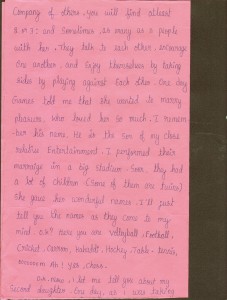 Company of others, you will find atleast
2 or 3; and sometimes as many as 11 people
with her. They talk to each other, encourage
one another, and enjoy themselves by taking
sides by playing against each other. One day
Games told me that she wanted to marry
pleasure, who loved her so much. I remem-
ber his name. He is the son of my close
relative Entertainment. I performed their
marriage in a big stadium. Soon, they had
a lot of children (some of them are twins)
She gave her wonderful names. I'll just
tell you the names as they come to my
mind, ok? Here you are Volleyball, Football,
Cricket, Carrom, Kabaddi, Hockey, Table-tennis,
Ah! yes, chess.
O.K. Now, let me tell you about my
Second daughter. One day, as I was taking